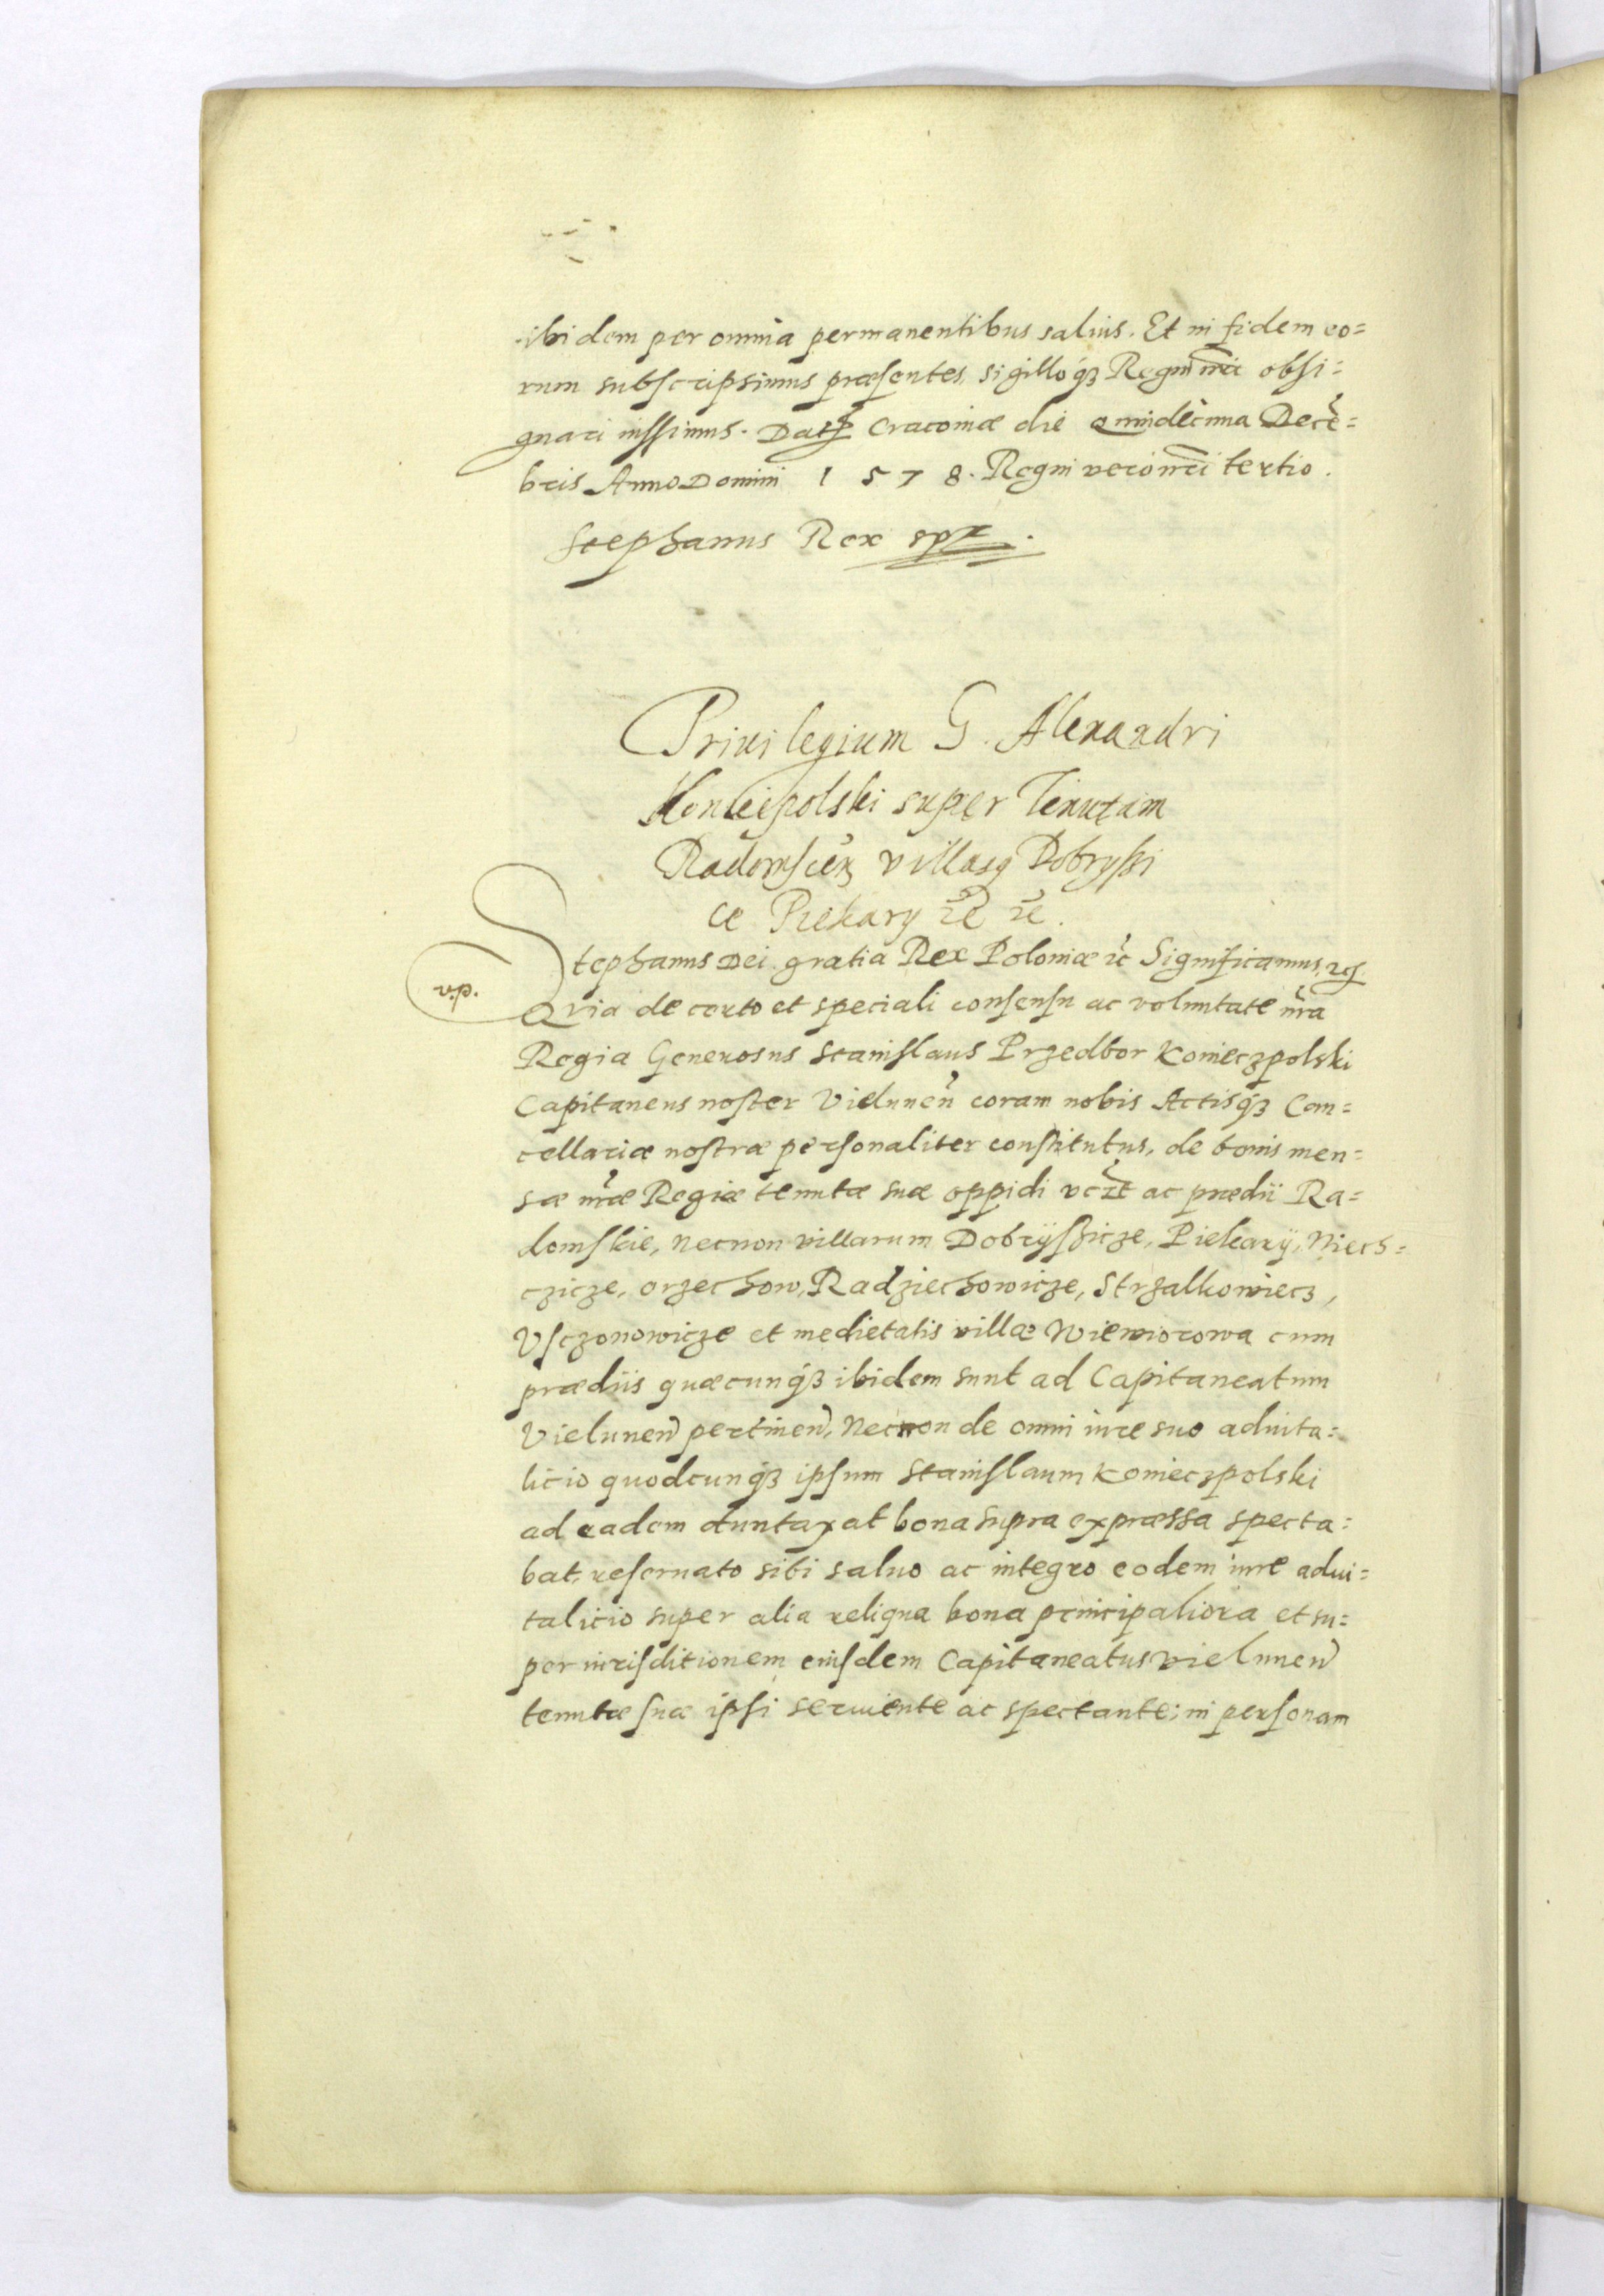 ibidem per omnia permanentibus saluis. Et in fidem eo=
rum subscripsimus præsentes, sigilloq́ꝫ Regni nr̃i obsi=
gnari iussimus. Datꝭ Cracouiæ die Quindecima Decẽ=
bris Anno Domini 1578. Regni vero nr̃i tertio.
Stephanus Rex spt.
Priuilegium G. Alexandri
Konieĉpolski super Tenutam
Radomscen̄ villasq Dobryßi
ce Piekary &c̃ &c̃.
Stephanus Dei gratia Rex Poloniæ &c̃ Significamus, &c.
vid.
Quia de certo et speciali consensu ac voluntate nr̃a
Regia Generosus Stanislaus Przedbor Konieczpolski
Capitaneus noster Vielunen̄ coram nobis Actisq́ꝫ Can=
cellariæ nostræ personaliter constitutus, de bonis men=
sæ nr̃æ Regiæ tenutæ suæ oppidi vcz̃t ac prædii Ra=
domskie, necnon villarum Dobrÿßicze, Piekarÿ, Niech=
czicze, orzechow, Radziechowicze, Strzalkowiecz,
Vsczonowicze et medietatis villæ Wiewiorowa cum
prædiis quæcunq́ꝫ ibidem sunt ad Capitaneatum
Vielunen̄ pertinen̄, Necnon de omni iure suo aduita=
licio quodcunq́ꝫ ipsum Stanislaum Konieczpolski
ad eadem duntaxat bona supra expræssa specta=
bat, reseruato sibi saluo ac integro eodem iure adui=
talicio super alia reliqua bona principaliora et su=
per iurisditionem eiusdem Capitaneatus Vielunen̄
tenutæ suæ ipsi seruiente ac spectante; in personam